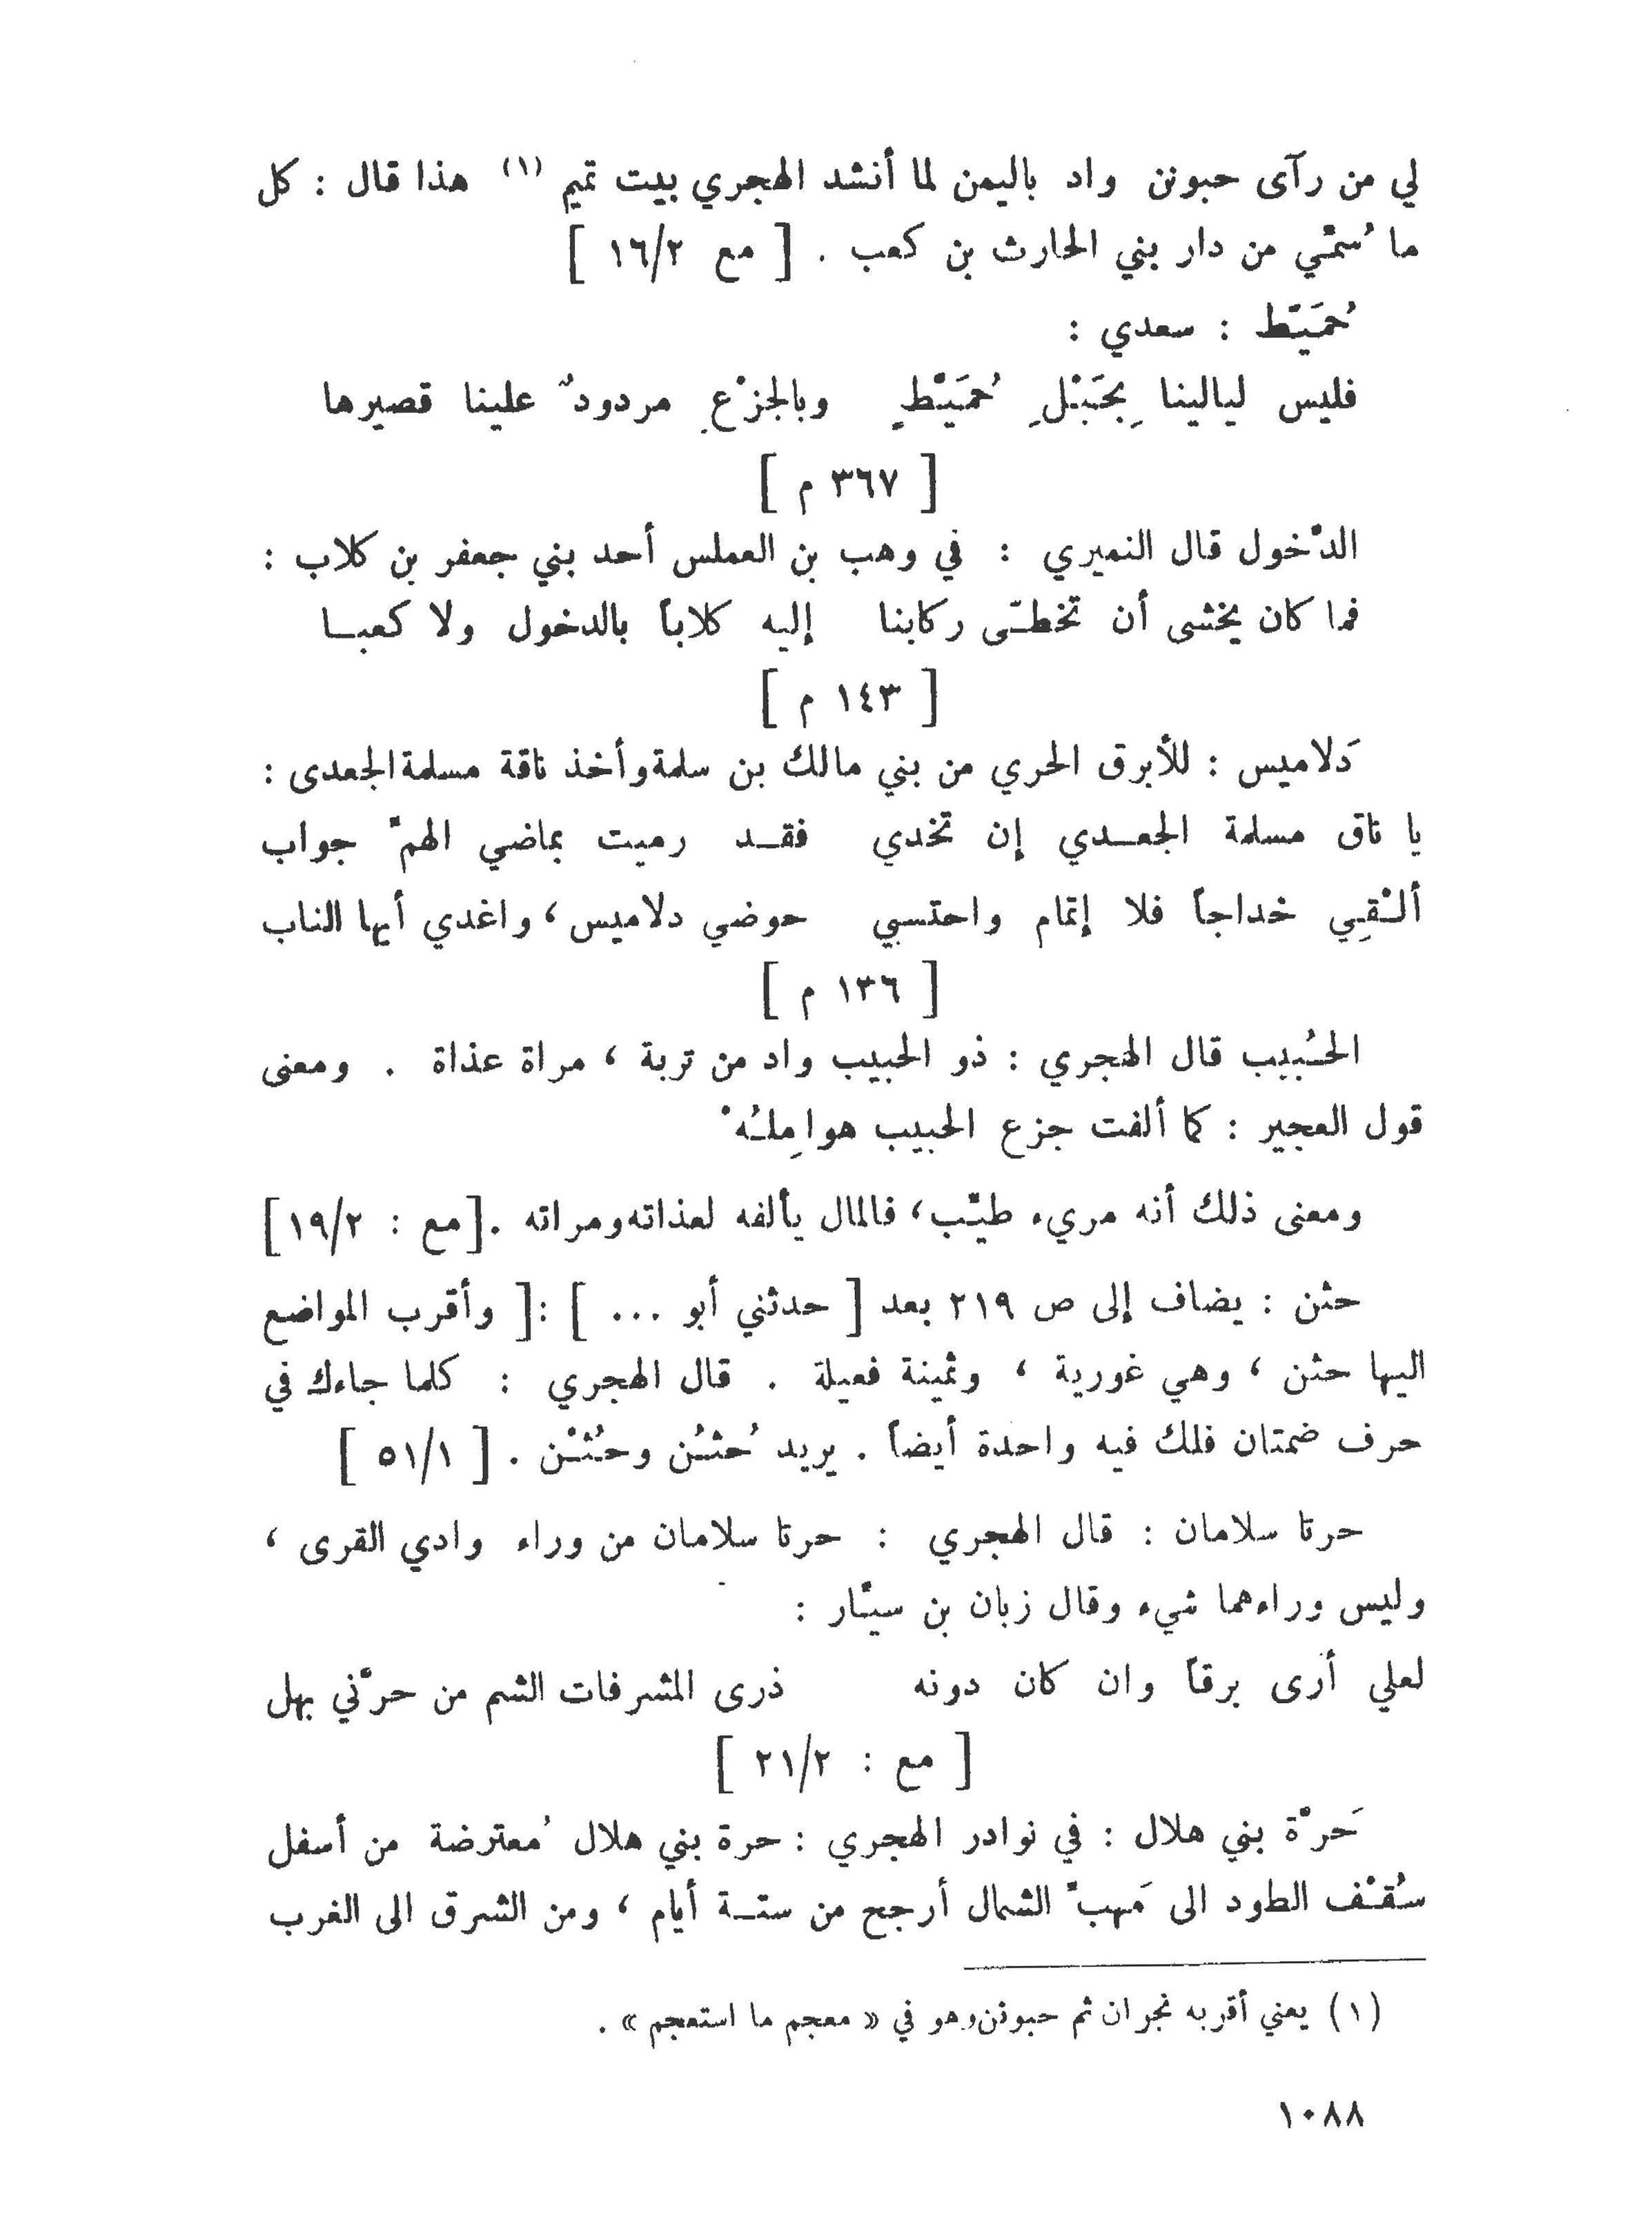 لي من رآى حبونن واد باليمن لما أنشد الهجري بيت تميم (١) هذا قال : كل
ما سُمّي من دار بني الحارث بن كعب . [ مع ١٦/٢ ]
حُمَيّط : سعدي :
فليس ليالينا بِجَبْلِ حُمَيّطٍ وبالجزْعِ مردودٌ علينا قصيرها
[ ٣٦٧ م ]
الدّخول قال النميري : في وهب بن العملس أحد بني جعفر بن كلاب :
فما كان يخشى أن تخطّى ركابنا إليه كلاباً بالدخول ولا كعبـا
[ ١٤٣ م ]
دَلاميس : للأبرق الحري من بني مالك بن سلمة وأخذ ناقة مسلمة الجعدى :
يا ناق مسلمة الجعـدي إن تخدي فقـد رميت بماضي الهمّ جواب
ألْقِي خداجاً فلا إتمام واحتسبي حوضي دلاميس ، واغدي أيها الناب
[ ١٣٦ م ]
الحُبيب قال الهجري : ذو الحبيب واد من تربة ، مراة عذاة . ومعنى
قول العجير : كما ألفت جزع الحبيب هوامِلُهْ
ومعنى ذلك أنه مريء طيّب ، فالمال يألفه لعذاته ومراته . [مع : ١٩/٢]
حثن : يضاف إلى ص ٢١٩ بعد [ حدثني أبو ... ] :[ وأقرب المواضع
اليها حثن ، وهي غورية ، وثمينة فعيلة . قال الهجري : كلما جاءك في
حرف ضمتان فلك فيه واحدة أيضاً . يريد حُثُن وحُثْن . [ ٥١/١ ]
حرتا سلامان : قال الهجري : حرتا سلامان من وراء وادي القرى ،
وليس وراءهما شيء وقال زبان بن سيّار :
لعلي أرى برقاً وان كان دونه ذرى المشرفات الشم من حرّتي بهل
[ مع : ٢١/٢ ]
حَرّة بني هلال : في نوادر الهجري : حرة بني هلال مُعترضة من أسفل
سُقْف الطود الى مَهبّ الشمال أرجح من ستـة أيام ، ومن الشرق الى الغرب
(١) يعني أقربه نجران ثم حبونن وهو في « معجم ما استعجم » .
١٠٨٨